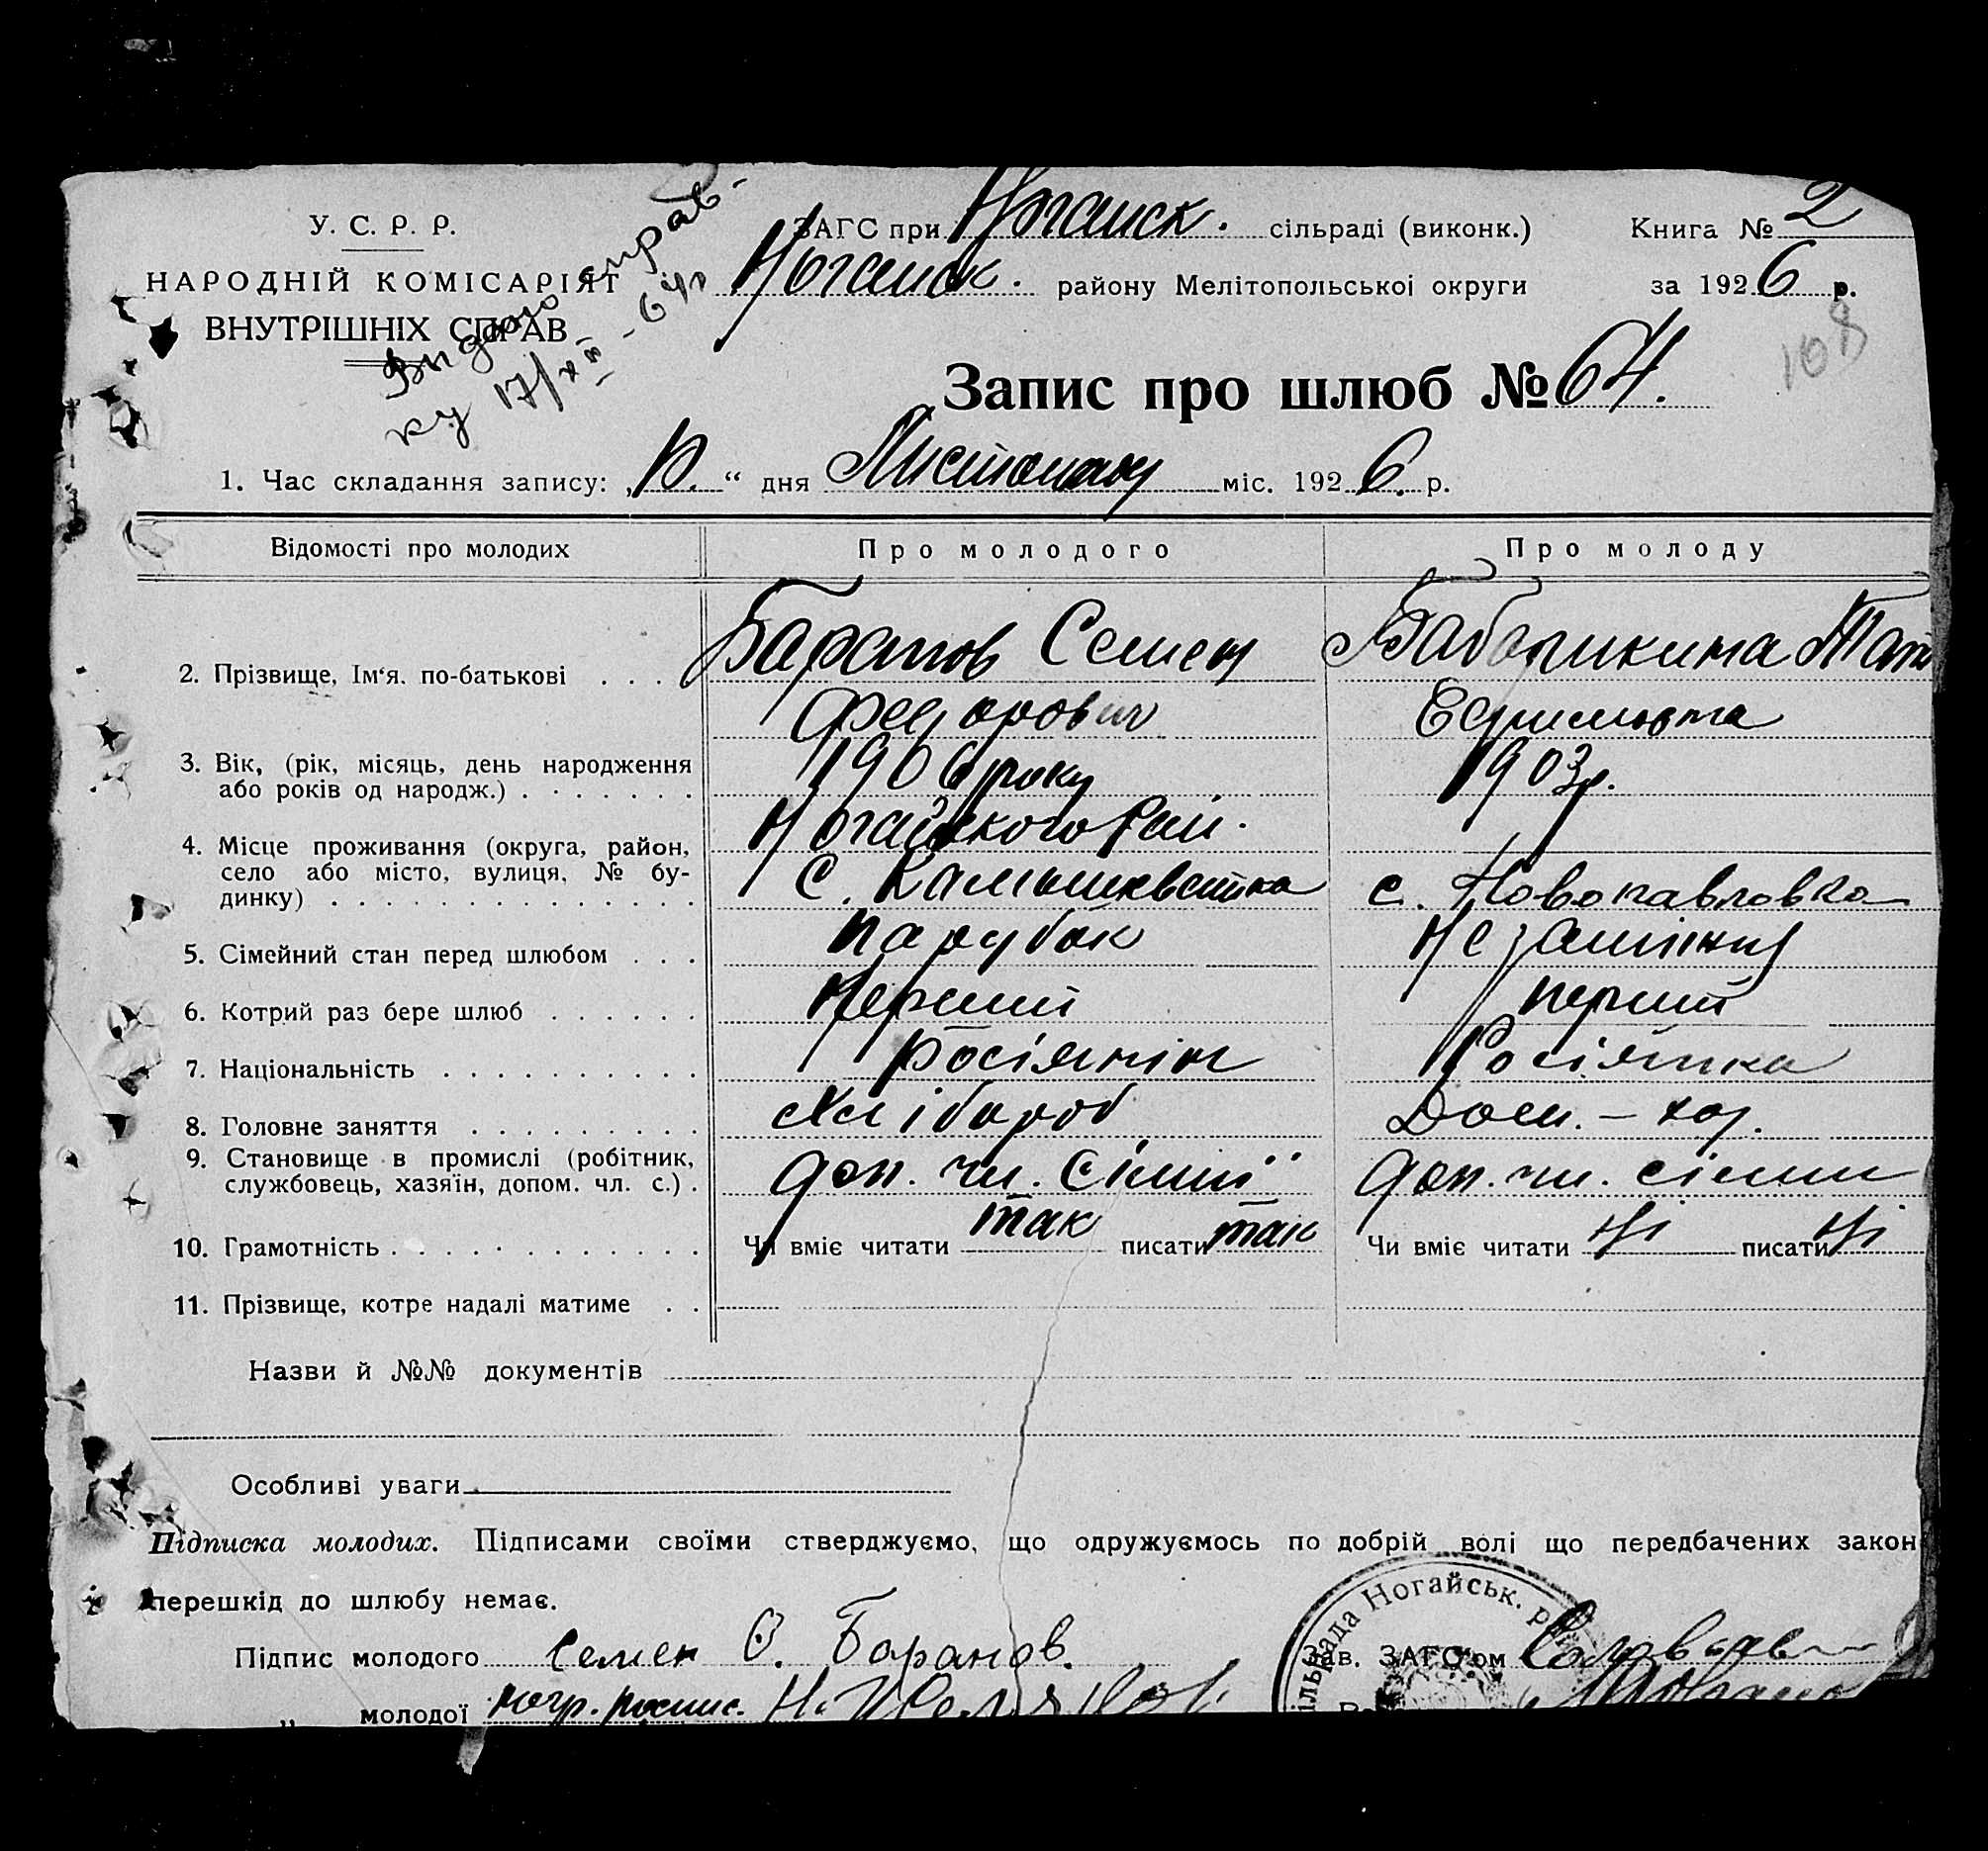 У. С. Р. Р.
НАРОДНІЙ КОМІСАРІЯТ
ВНУТРІШНІХ СПРАВ
Видано справ-
ку 17/XII - 64р
ЗАГС при Ногайск. сільраді (виконк.) Книга № 2
Ногайск. району Мелітопольської округи за 1926 р.
108
Запис про шлюб № 64.
1. Час складання запису: „10.“ дня Листопаду міс. 1926. р.
Відомості про молодих Про молодого Про молоду
2. Прізвище, Ім‘я. по-батькові . . . Баранов Семен Бабушкина Тат
Федорович
3. Вік, (рік, місяць, день народження 1906 року 1903р.
або років од народж.) . . . . . . .
Ногайского Рай.
4. Місце проживання (округа, район,
село або місто, вулиця, № бу- с. с. Новопавловка
динку) . . . . . . . . . . . . . . .
5. Сімейний стан перед шлюбом . . . парубок
6. Котрий раз бере шлюб . . . . . . Перший перший
7. Національність . . . . . . . . . . Росіянін Росіянка
8. Головне заняття . . . . . . . . . Хлібороб Дом. – хоз.
9. Становище в промислі (робітник, доп. чл. сімії доп. чл. сімии
службовець, хазяїн, допом. чл. с.) .
10. Грамотність . . . . . . . . . . . . Чи вміє читати так писати так Чи вміє читати Ні писати Ні
11. Прізвище, котре надалі матиме . .
Назви й №№ документів
Особливі уваги
Підписка молодих. Підписами своїми стверджуємо, що одружуємось по добрій волі що передбачених закон
перешкід до шлюбу немає.
Підпис молодого Семен Ф. Баранов. Зав. ЗАГС'ом
„ молодої
сільрада Ногайськ. р